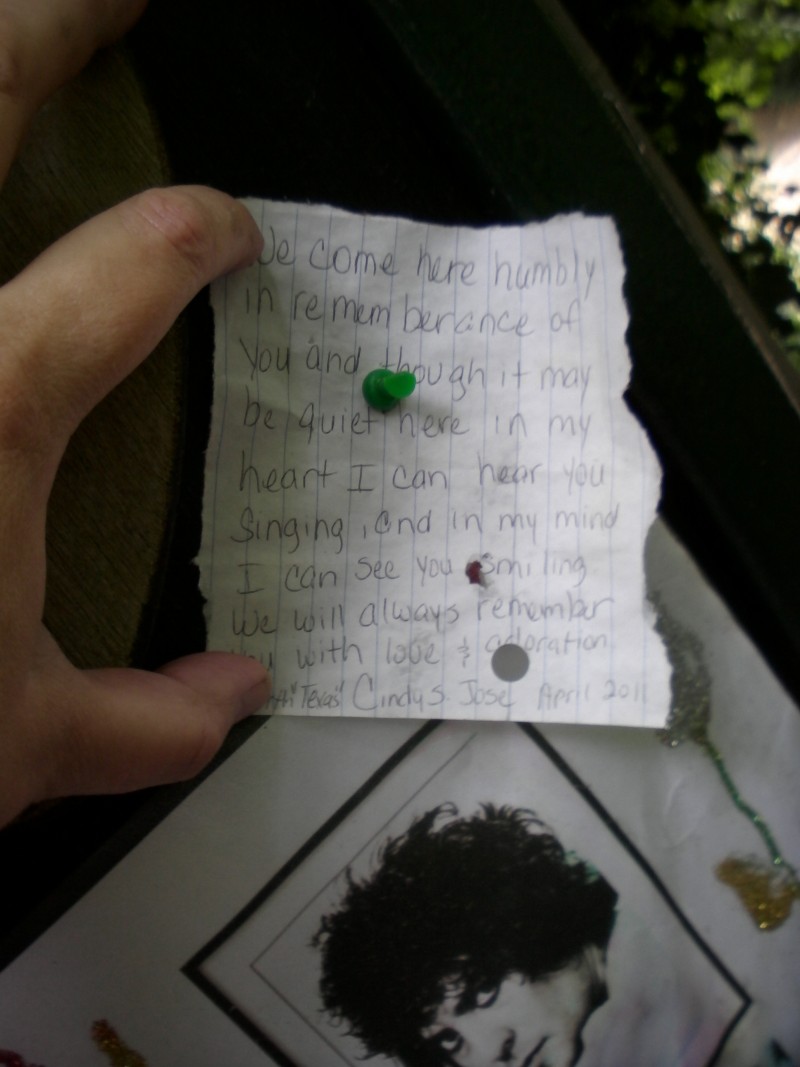 We come here humbly
in rememberance of
you and though it may
be quiet here in my
heart I can hear you
singing, and in my mind
I can see you smiling
We will always remember
you with love & adoration
"Texas" Cindy S. Jose April 2011